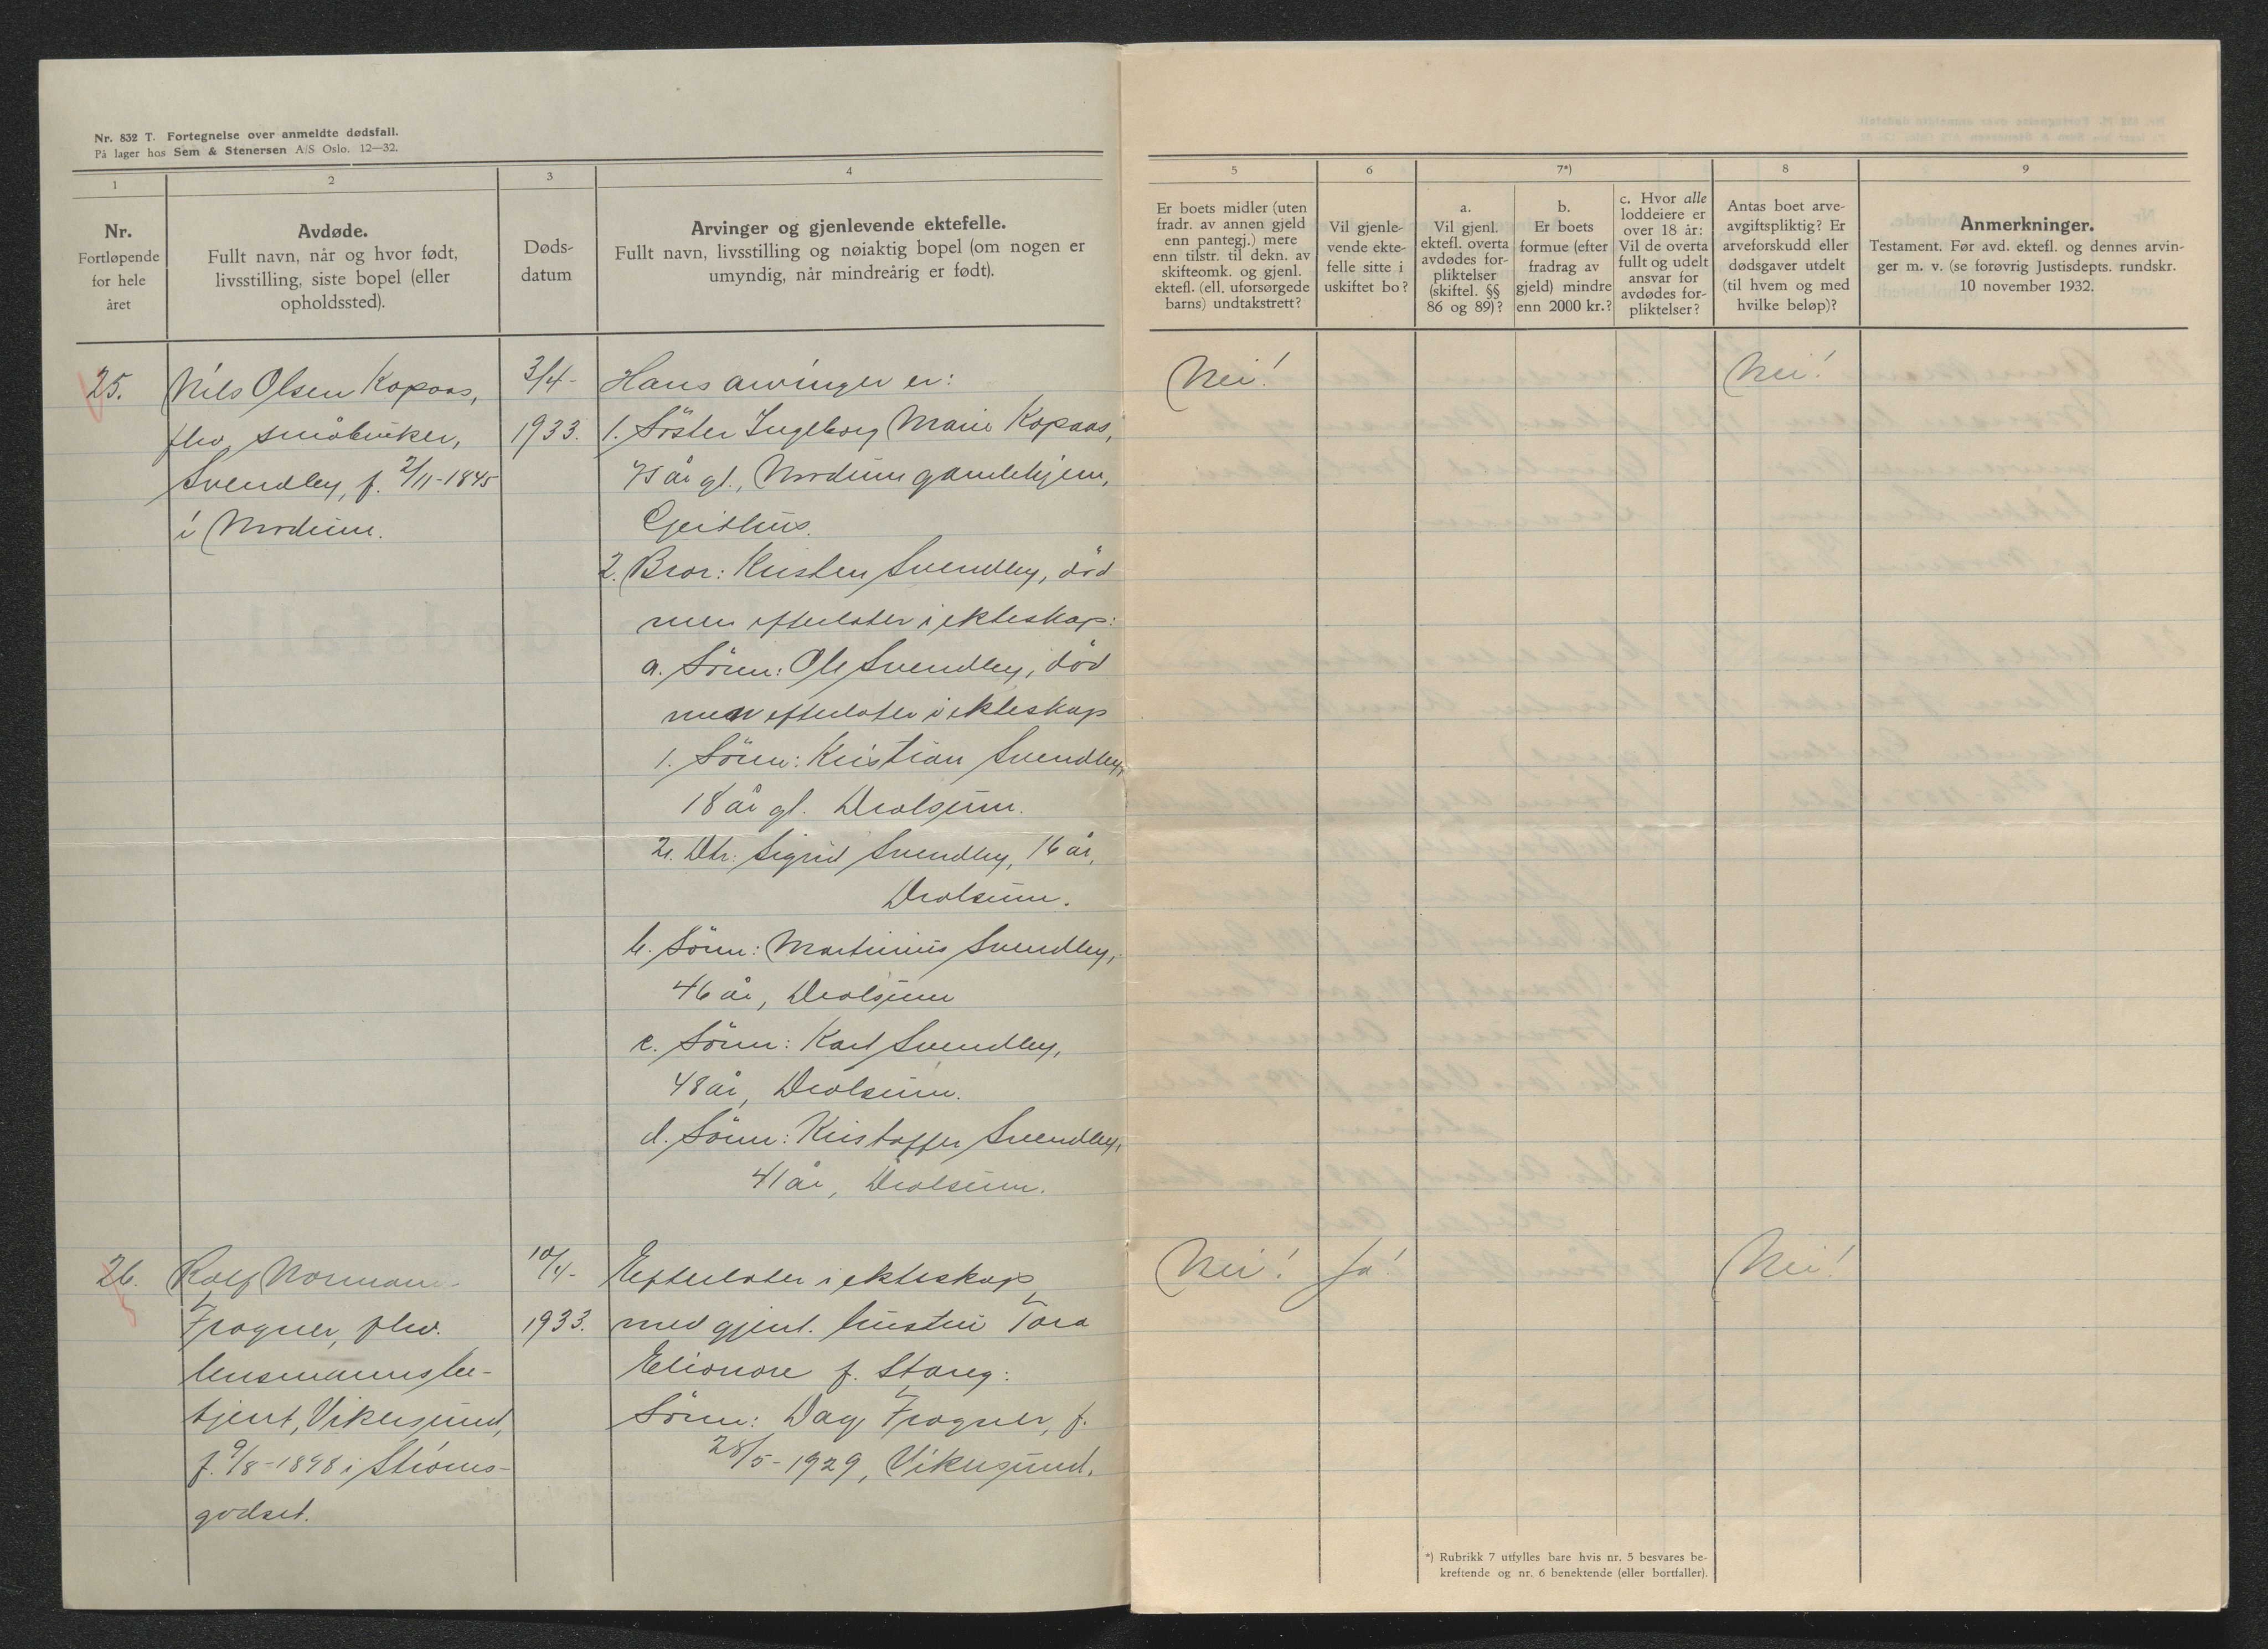 Nr. 832 T. Fortegnelse over anmeldte dødsfall.
På lager hos Sem & Stenersen A/S Oslo. 12—32.
1
2
3
4
Nr.
Fortløpende
for hele
året
Avdøde.
Fullt navn, når og hvor født,
livsstilling, siste bopel (eller
opholdssted).
Døds-
datum
Arvinger og gjenlevende ektefelle.
Fullt navn, livsstilling og nøiaktig bopel (om nogen er
umyndig, når mindreårig er født).
5
6
7*)
8
9
Er boets midler (uten
fradr. av annen gjeld
enn pantegj.) mere
enn tilstr. til dekn. av
skifteomk. og gjenl.
ektefl. (ell. uforsørgede
barns) undtakstrett?
Vil gjenle-
vende ekte-
felle sitte i
uskiftet bo?
a.
Vil gjenl.
ektefl. overta
avdødes for-
pliktelser
(skiftel. §§
86 og 89)?
b.
Er boets
formue (efter
fradrag av
gjeld) mindre
enn 2000 kr.?
c. Hvor alle
loddeiere er
over 18 år:
Vil de overta
fullt og udelt
ansvar for
avdødes for-
pliktelser?
Antas boet arve-
avgiftspliktig? Er
arveforskudd eller
dødsgaver utdelt
(til hvem og med
hvilke beløp)?
Anmerkninger.
Testament. Før avd. ektefl. og dennes arvin-
ger m. v. (se forøvrig Justisdepts. rundskr.
10 november 1932.
25.
Nils Olsen Kopaas,
fhv. småbruker,
Svendby, f. 2/11-1845
i Modum.
3/4-
1933.
Hans arvinger er:
1. Söster Ingeborg Marie Kopaas,
75 år gl., Modum gamlehjem,
Geithus.
2. Bror: Kristen Svendby, död
men efterlater i ekteskap:
a. Sönn: Ole Svendby, död
men efterlater i ekteskap
1. Sönn: Kristian Svendby,
18 år gl. Drolsum.
2. Dtr: Sigrid Svendby, 16 år,
Drolsum.
b. Sönn: Martinius Svendby,
46 år, Drolsum
c. Sönn: Karl Svendby,
48 år, Drolsum.
d. Sönn: Kristoffer Svendby,
41 år, Drolsum.
Nei!
Nei!
26.
Rolf Normann
Frogner, fhv.
lensmannsbe-
tjent, Vikersund,
f. 9/8-1898 i Ströms-
godset.
10/4-
1933.
Efterlater i ekteskap
med gjenl. hustru Tora
Elionore f. Stang:
Sönn: Dag Frogner, f.
28/5-1929, Vikersund.
Nei!
Ja!
Nei!
*) Rubrikk 7 utfylles bare hvis nr. 5 besvares be-
kreftende og nr. 6 benektende (eller bortfaller).